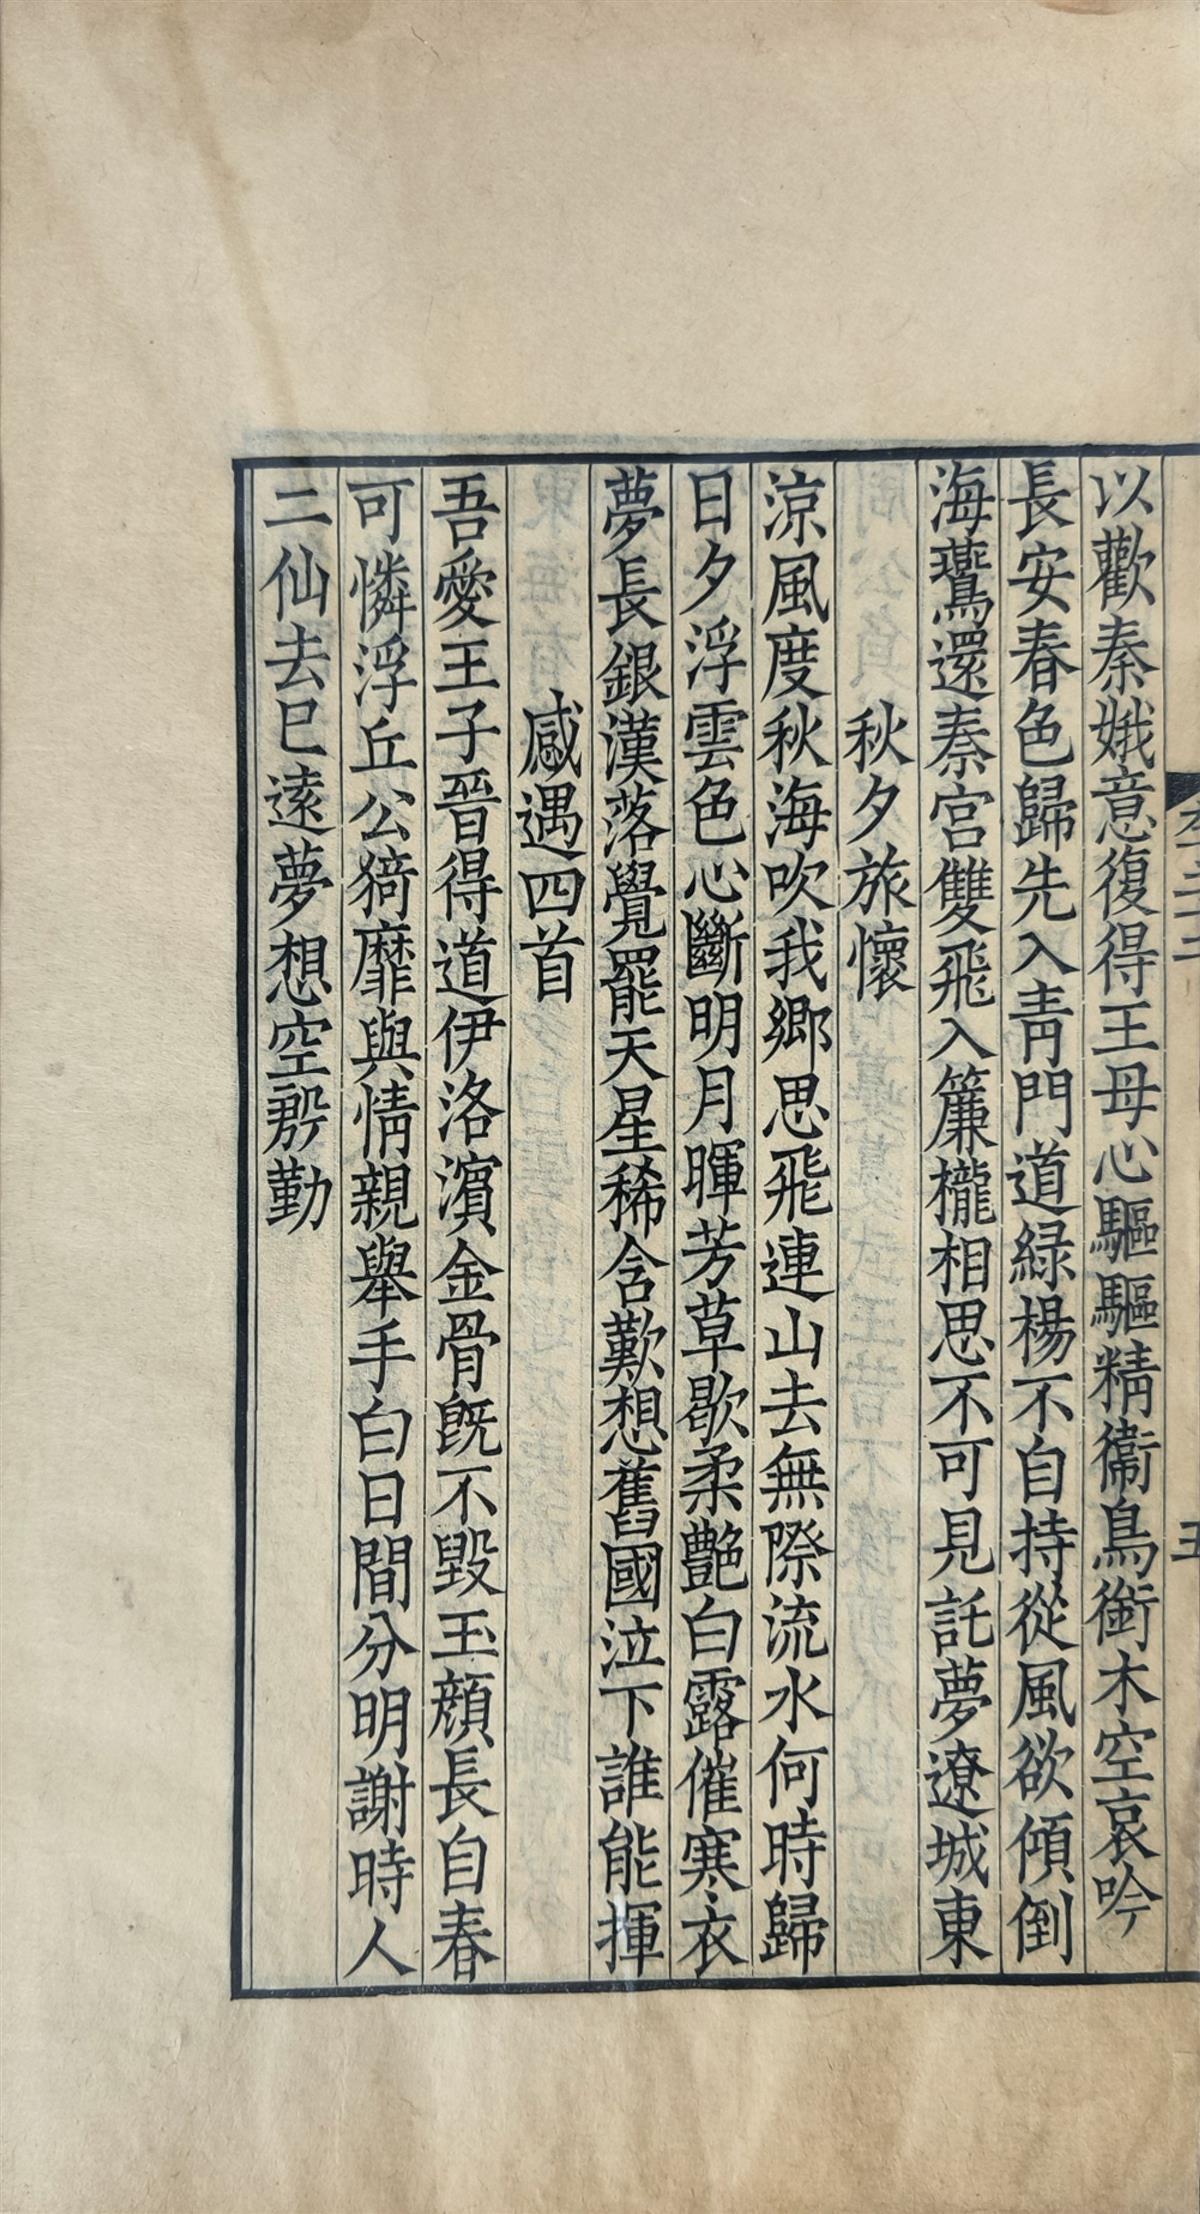 以歡秦娥意復得王母心驅驅精衞鳥銜木空哀吟
長安春色歸先入青門道緑楊不自持從風欲傾倒
海鷰還秦宮雙飛入簾櫳相思不可見託夢遼城東
秋夕旅懷
涼風度秋海吹我鄉思飛連山去無際流水何時歸
日夕浮雲色心斷明月暉芳草歇柔艷白露催寒衣
夢長銀漢落覺罷天星稀含歎想舊國泣下誰能揮
感遇四首
吾愛王子晉得道伊洛濱金骨旣不毀玉顔長自春
可憐浮丘公猗靡與情親舉手白日間分明謝時人
二仙去巳遠夢想空慇勤